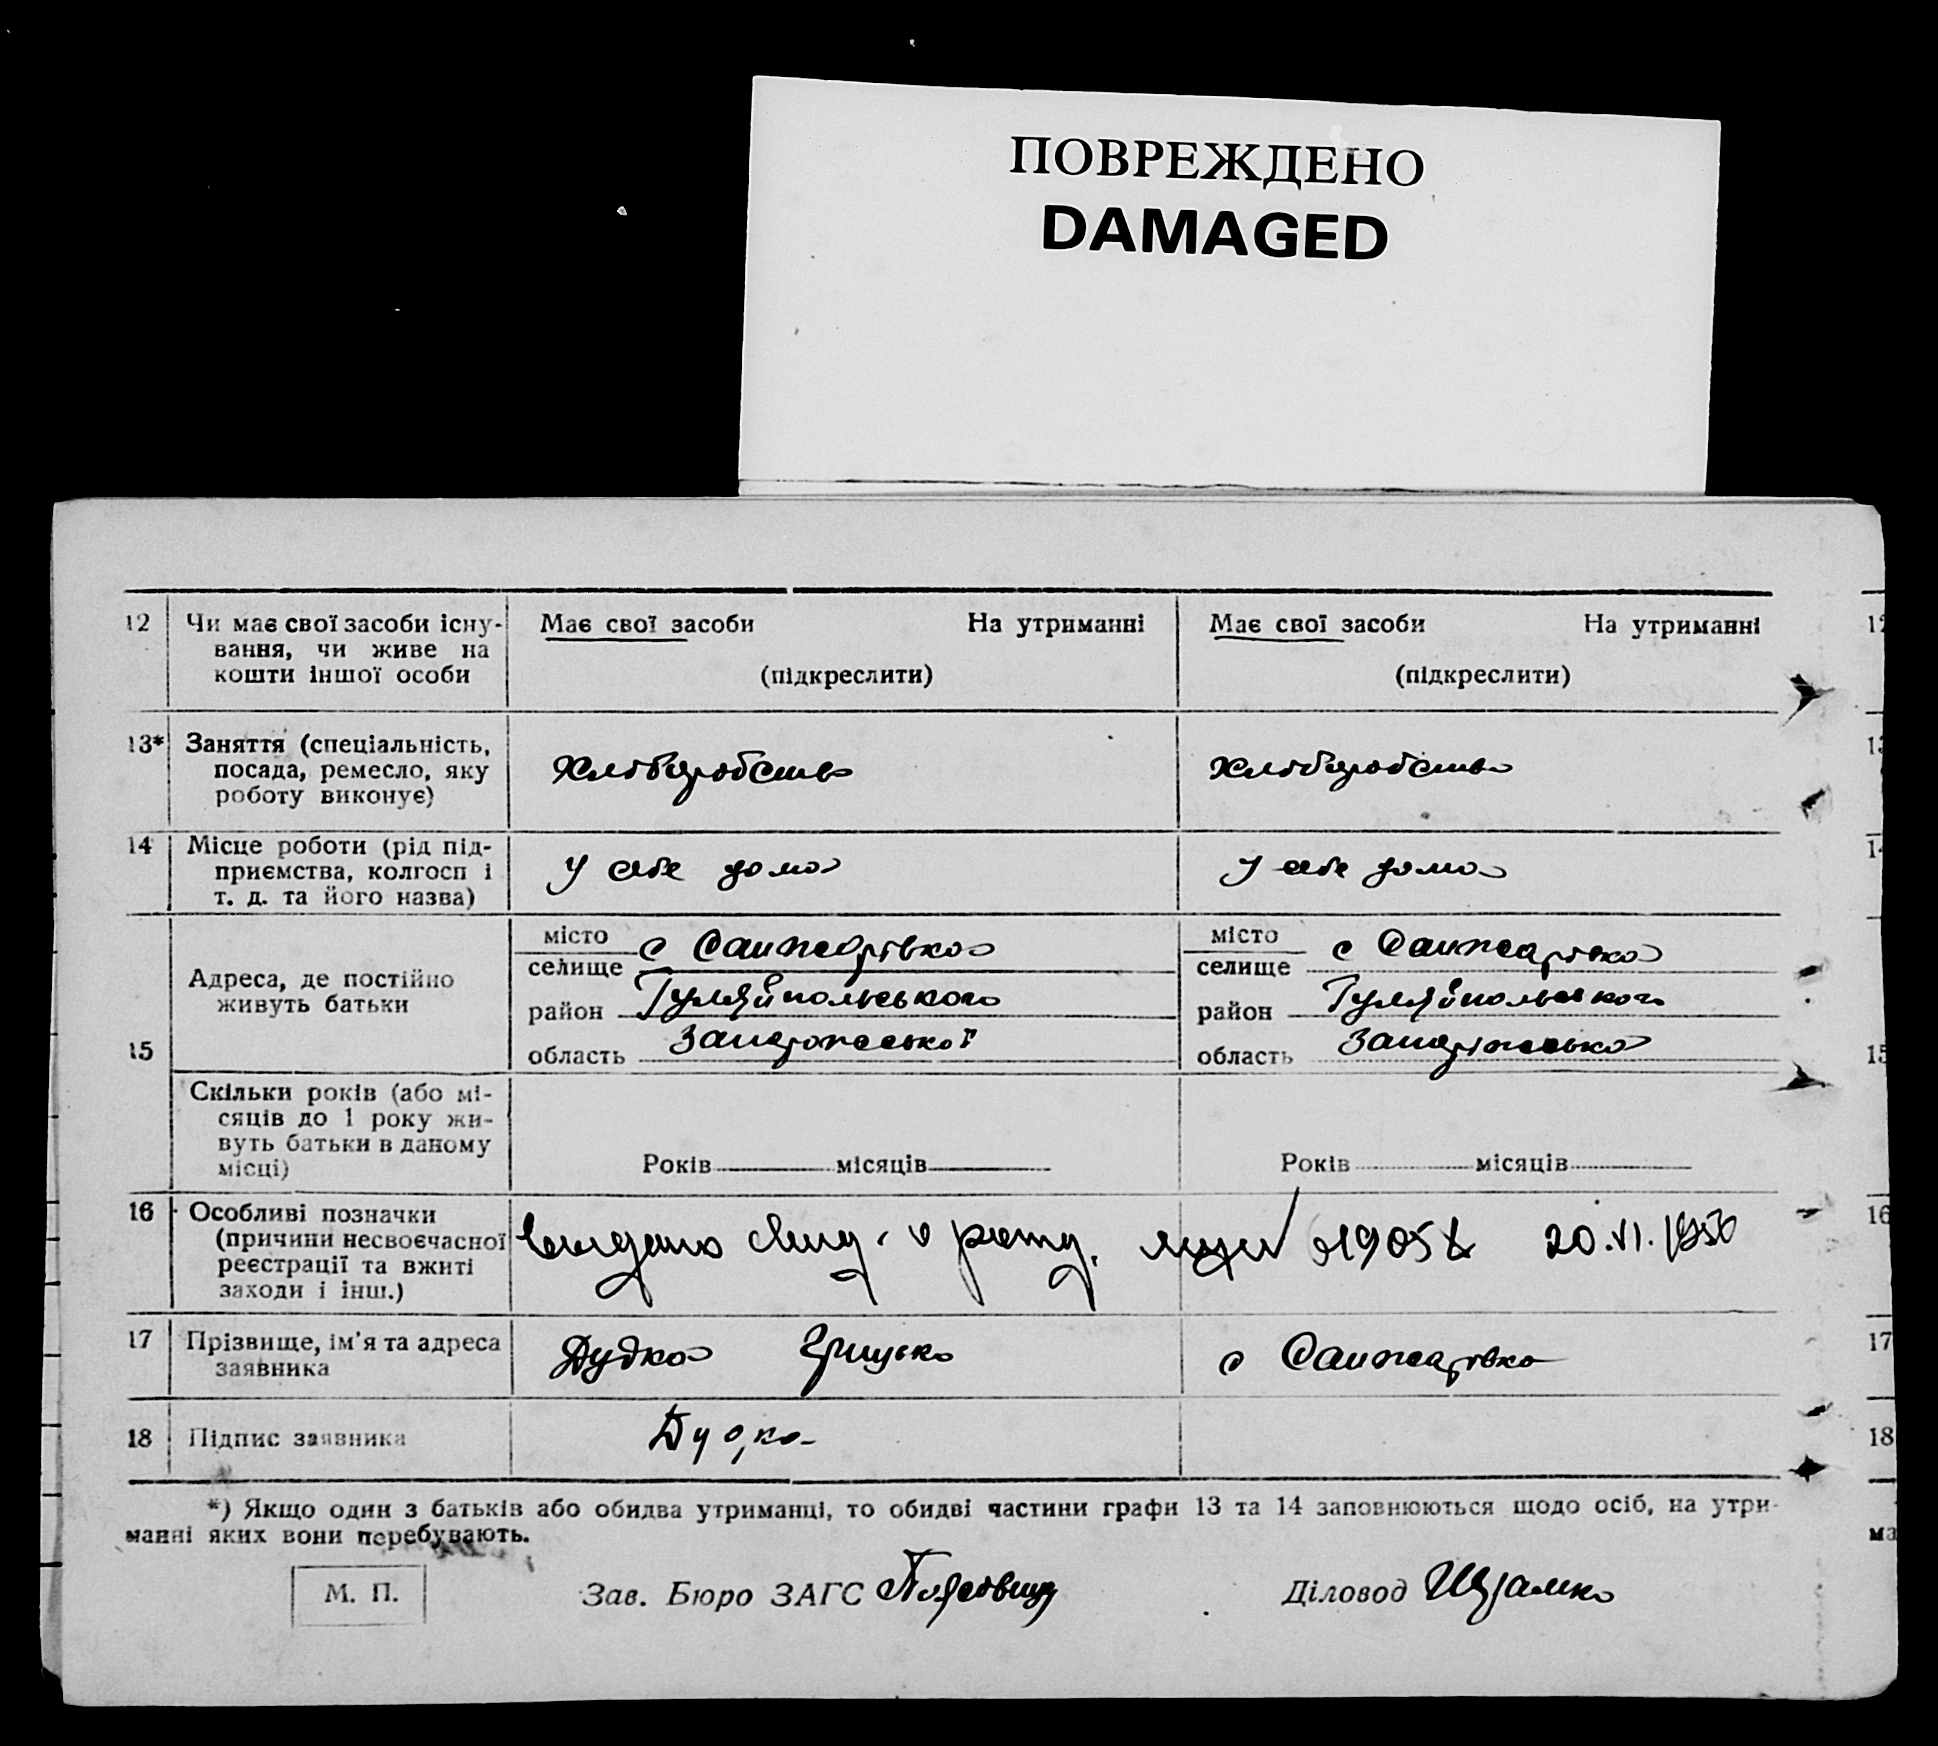 ПОВРЕЖДЕНО
DAMAGED
12 Чи має свої засоби існу-
вання, чи живе на
кошти іншої особи
Має свої засоби На утриманні
(підкреслити)
Має свої засоби На утриманні
(підкреслити)
12
13* Заняття (спеціальність,
посада, ремесло, яку
роботу виконує)
Хліборобство
Хліборобство
13
14 Місце роботи (рід під-
приємства, колгосп і
т. д. та його назва)
У себе дома
У себе дома
14
15 Адреса, де постійно
живуть батьки
місто
селище с Санжарівка
район Гуляйпольського
область Запорожської
місто
селище с Санжарівка
район Гуляйпольського
область Запоріжська
15
Скільки років (або мі-
сяців до 1 року жи-
вуть батьки в даному
місці)
Років місяців
Років місяців
16 Особливі позначки
(причини несвоєчасної
реєстрації та вжиті
заходи і інш.)
20.VI.1950
16
17 Прізвище, ім'я та адреса
заявника
Дудка Грицько
с Санжарівка
17
18 Підпис заявника
Дудка
18
*) Якщо один з батьків або обидва утриманці, то обидві частини графи 13 та 14 заповнюються щодо осіб, на утри-
манні яких вони перебувають.
ма
М. П.
Зав. Бюро ЗАГС
Діловод